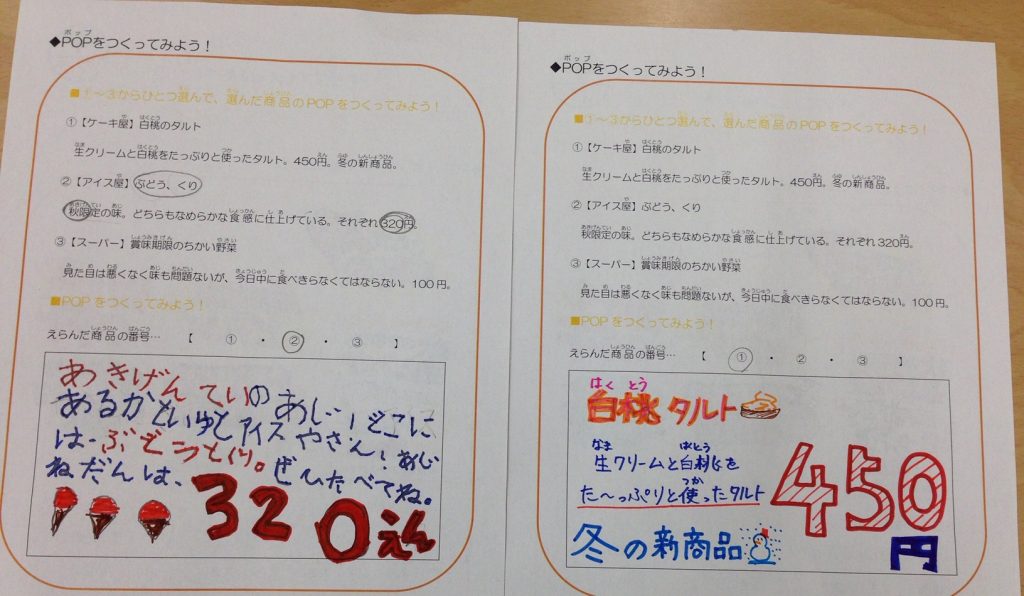 ◆POPをつくってみよう！
■①～③からひとつ選んで、選んだ商品のPOPをつくってみよう！
①【ケーキ屋】白桃のタルト
生クリームと白桃をたっぷりと使ったタルト。450円。冬の新商品。
②【アイス屋】ぶどう、くり
秋限定の味。どちらもなめらかな食感に仕上げている。それぞれ320円。
③【スーパー】賞味期限のちかい野菜
見た目は悪くなく味も問題ないが、今日中に食べきらなくてはならない。100円。
■POPをつくってみよう！
えらんだ商品の番号…　【　①　・　②　・　③　】
あきげんていの あじ！どこに
あるかといゆとアイスやさん！あじ
は-ぶどうとくり。ぜひたべてね。
ねだんは、
320えん
◆POPをつくってみよう！
■①～③からひとつ選んで、選んだ商品のPOPをつくってみよう！
①【ケーキ屋】白桃のタルト
生クリームと白桃をたっぷりと使ったタルト。450円。冬の新商品。
②【アイス屋】ぶどう、くり
秋限定の味。どちらもなめらかな食感に仕上げている。それぞれ320円。
③【スーパー】賞味期限のちかい野菜
見た目は悪くなく味も問題ないが、今日中に食べきらなくてはならない。100円。
■POPをつくってみよう！
えらんだ商品の番号…　【　①　・　②　・　③　】
はくとう
白桃タルト
なま はくとう
生クリームと白桃を
つか
た～っぷりと使ったタルト
450
円
冬の新商品